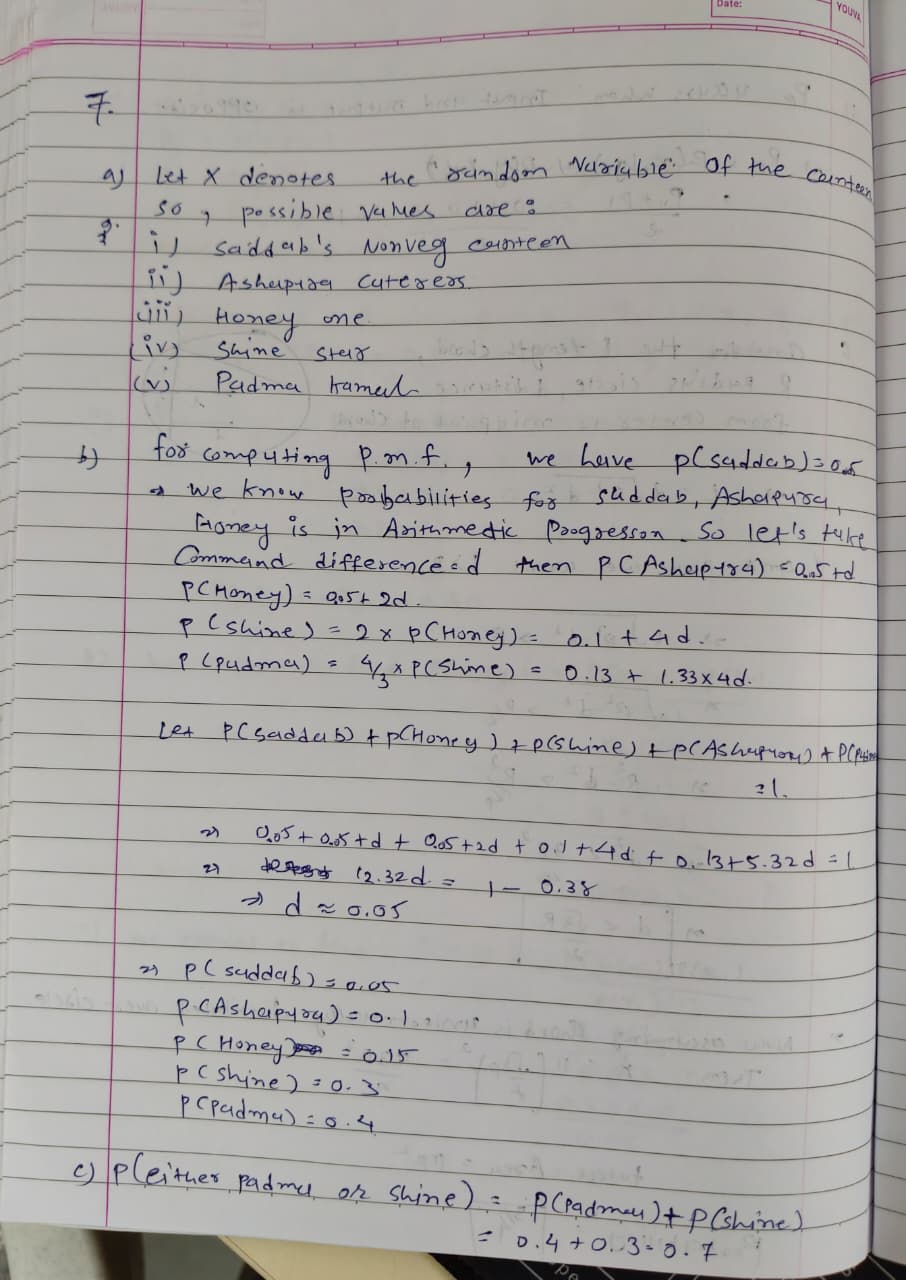 Date:
YOUVA
7.
a) Let X denotes the random variable of the canteen
so, possible values are :
i) saddab's Nonveg canteen
ii) Ashapura Caterers
iii) Honey one
(iv) Shine star
(v) Padma kamal
b) for computing P.m.f., we have p(saddab)=0.5
→ we know probabilities for saddab, Ashapura,
Honey is in Arithmedic Progresson. So let's take
Command difference = d then P(Ashapura) = 0.05+d
P(Honey) = 0.05+ 2d.
P (shine) = 2 x P(Honey) = 0.1 + 4d.
P (padma) = 4/3 x P(Shine) = 0.13 + 1.33x4d.
Let P(saddab) + p(Honey) + p(shine) + p(Ashapura) + P(padma)
=1.
⇒ 0.05 + 0.05 +d + 0.05+2d + 0.1 +4d + 0.13+5.32d = 1
⇒ 12.32d = 1 - 0.38
⇒ d ≈ 0.05
⇒ P(saddab) = 0.05
P(Ashapura) = 0.1
P(Honey) = 0.15
P(shine) = 0.3
P(padma) = 0.4
c) P(either padma or shine) = P(Padma) + P(shine)
= 0.4 + 0.3 = 0.7